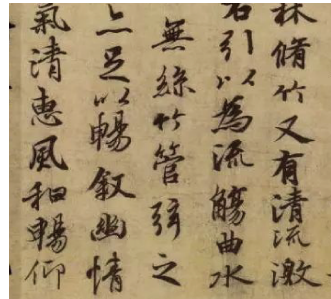 林脩竹又有清流激
右引以為流觴曲水
無絲竹管弦之
亦足以暢叙幽情
氣清惠風和暢仰